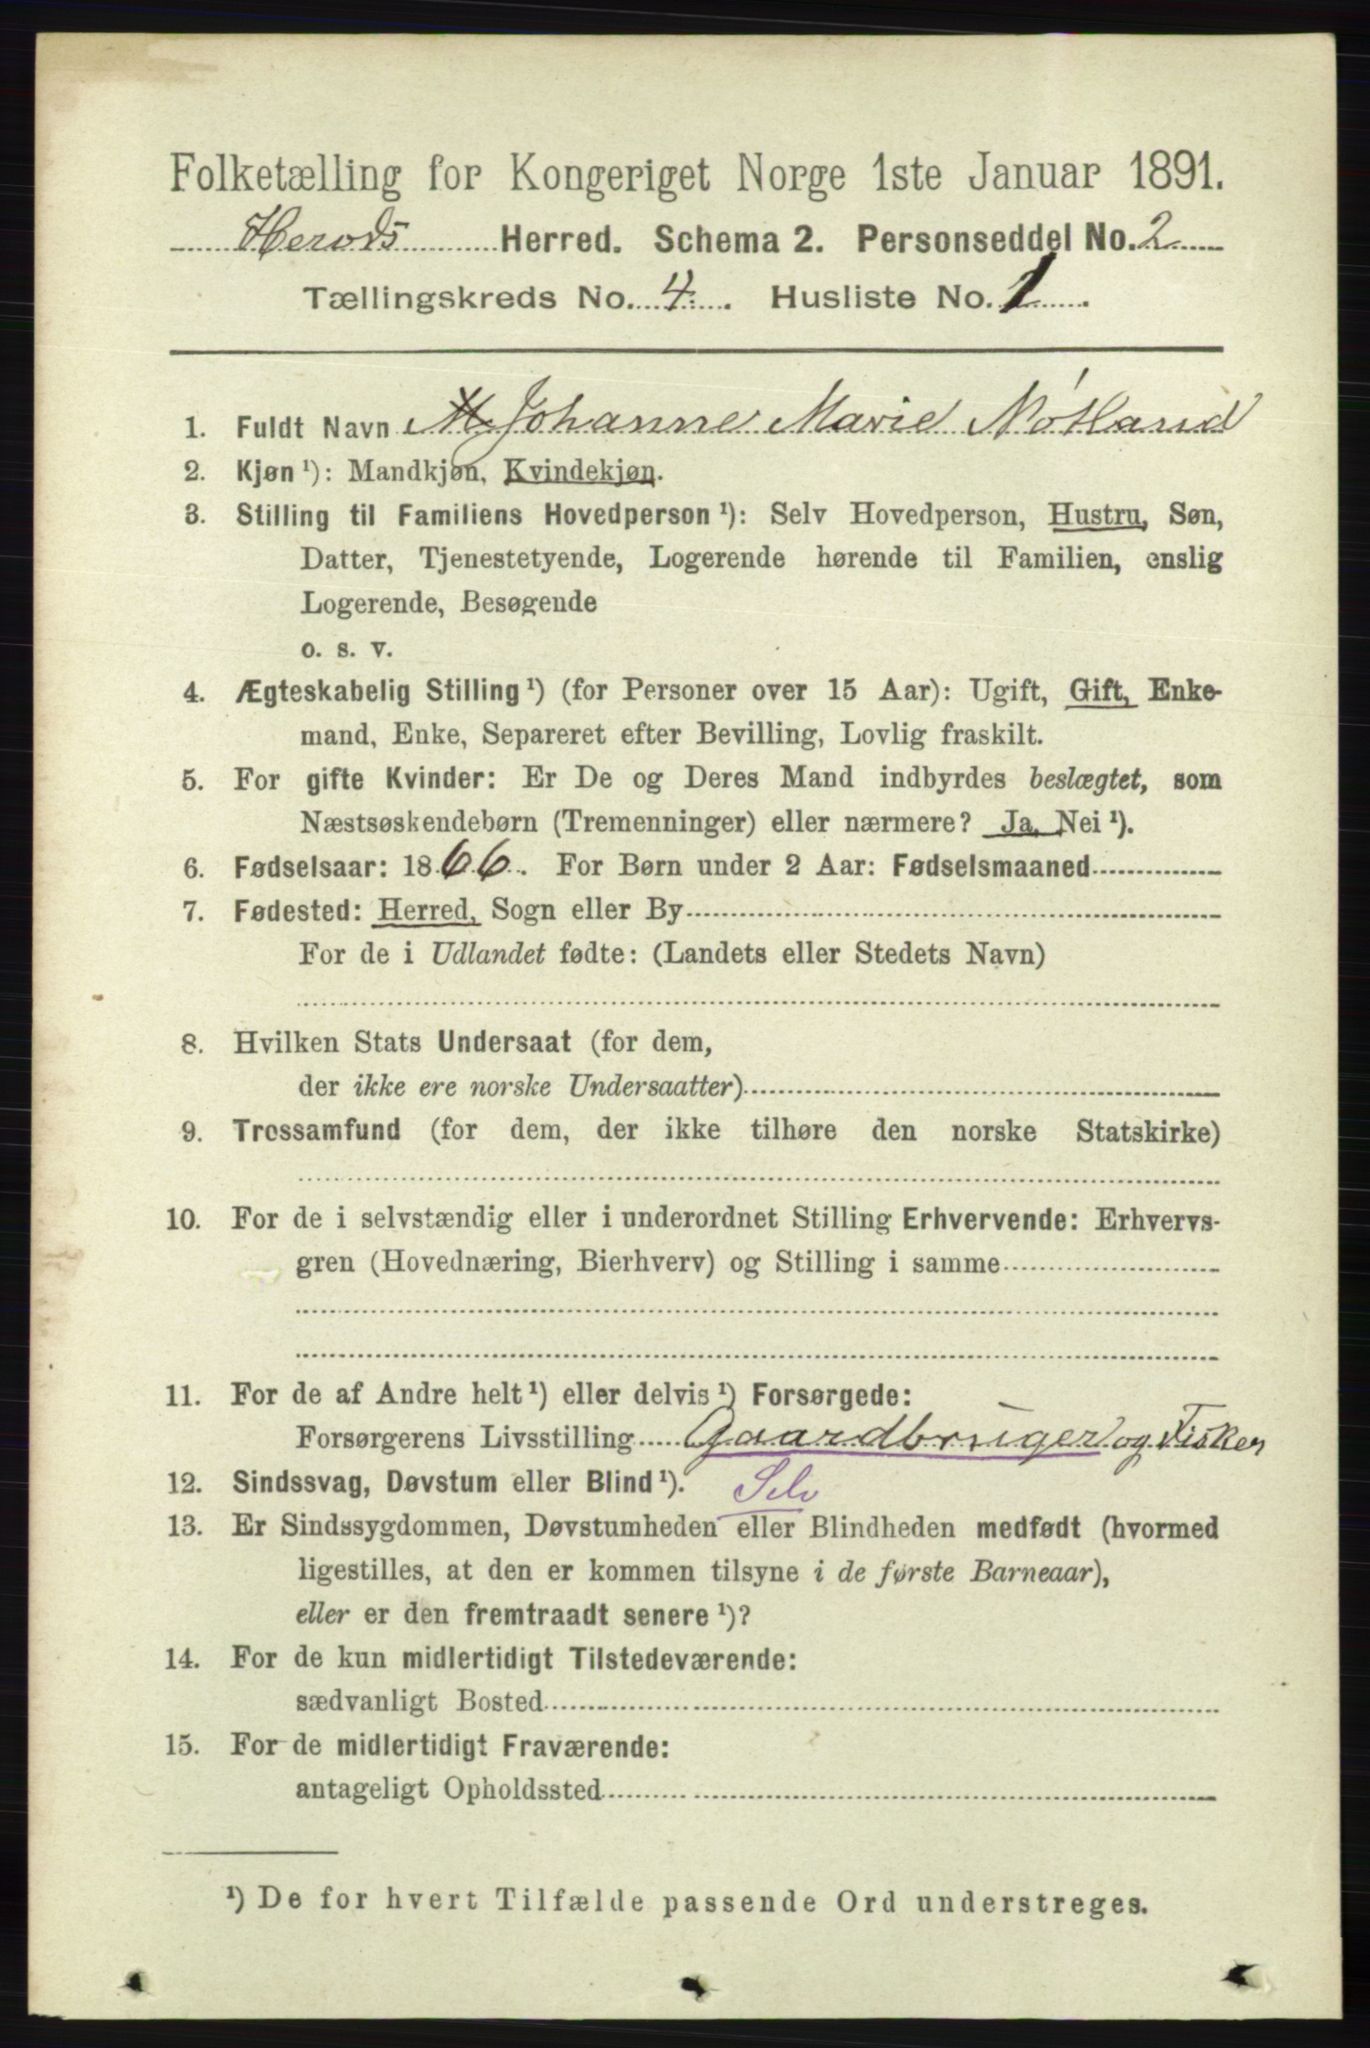 Folketælling for Kongeriget Norge 1ste Januar 1891.
Herøds Herred. Schema 2. Personseddel No. 2
Tællingskreds No. 4. Husliste No. 1
1. Fuldt Navn Johanne Marie Nøtland
2. Kjøn ¹): Mandkjøn, Kvindekjøn.
3. Stilling til Familiens Hovedperson ¹): Selv Hovedperson, Hustru, Søn,
Datter, Tjenestetyende, Logerende hørende til Familien, enslig
Logerende, Besøgende
o. s. v.
4. Ægteskabelig Stilling ¹) (for Personer over 15 Aar): Ugift, Gift, Enke-
mand, Enke, Separeret efter Bevilling, Lovlig fraskilt.
5. For gifte Kvinder: Er De og Deres Mand indbyrdes beslægtet, som
Næstsøskendebørn (Tremenninger) eller nærmere? Ja, Nei ¹).
6. Fødselsaar: 1866. For Børn under 2 Aar: Fødselsmaaned
7. Fødested: Herred, Sogn eller By
For de i Udlandet fødte: (Landets eller Stedets Navn)
8. Hvilken Stats Undersaat (for dem,
der ikke ere norske Undersaatter)
9. Trossamfund (for dem, der ikke tilhøre den norske Statskirke)
10. For de i selvstændig eller i underordnet Stilling Erhvervende: Erhvervs-
gren (Hovednæring, Bierhverv) og Stilling i samme
11. For de af Andre helt ¹) eller delvis ¹) Forsørgede:
Forsørgerens Livsstilling Gaardbruger og Fisker
12. Sindssvag, Døvstum eller Blind ¹). Selv
13. Er Sindssygdommen, Døvstumheden eller Blindheden medfødt (hvormed
ligestilles, at den er kommen tilsyne i de første Barneaar),
eller er den fremtraadt senere ¹)?
14. For de kun midlertidigt Tilstedeværende:
sædvanligt Bosted
15. For de midlertidigt Fraværende:
antageligt Opholdssted
¹) De for hvert Tilfælde passende Ord understreges.